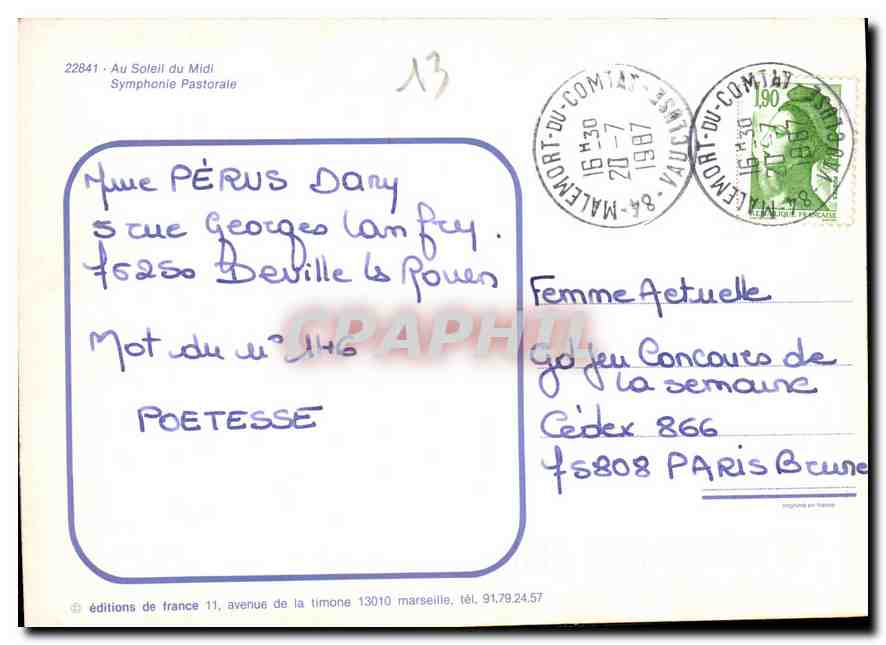 22841 - Au Soleil du Midi
Symphonie Pastorale
13
MALEMORT-DU-COMTAT - VAUCLUSE - 84 -
16 H 30
20 - 7
1987
MALEMORT-DU-COMTAT VAUCLUSE - 84 -
16 H 30
20 - 7
1987
1,90
REPUBLIQUE FRANÇAISE
Mme PÉRUS Dany
5 rue Georges Lanfry.
76250 Deville les Rouen
Mot du n° 146
POETESSE
CPAPHIL
Femme Actuelle
Gd Jeu Concours de
la semaine
Cédex 866
75808 PARIS Brune
imprimé en france
© éditions de france 11, avenue de la timone 13010 marseille, tél. 91.79.24.57